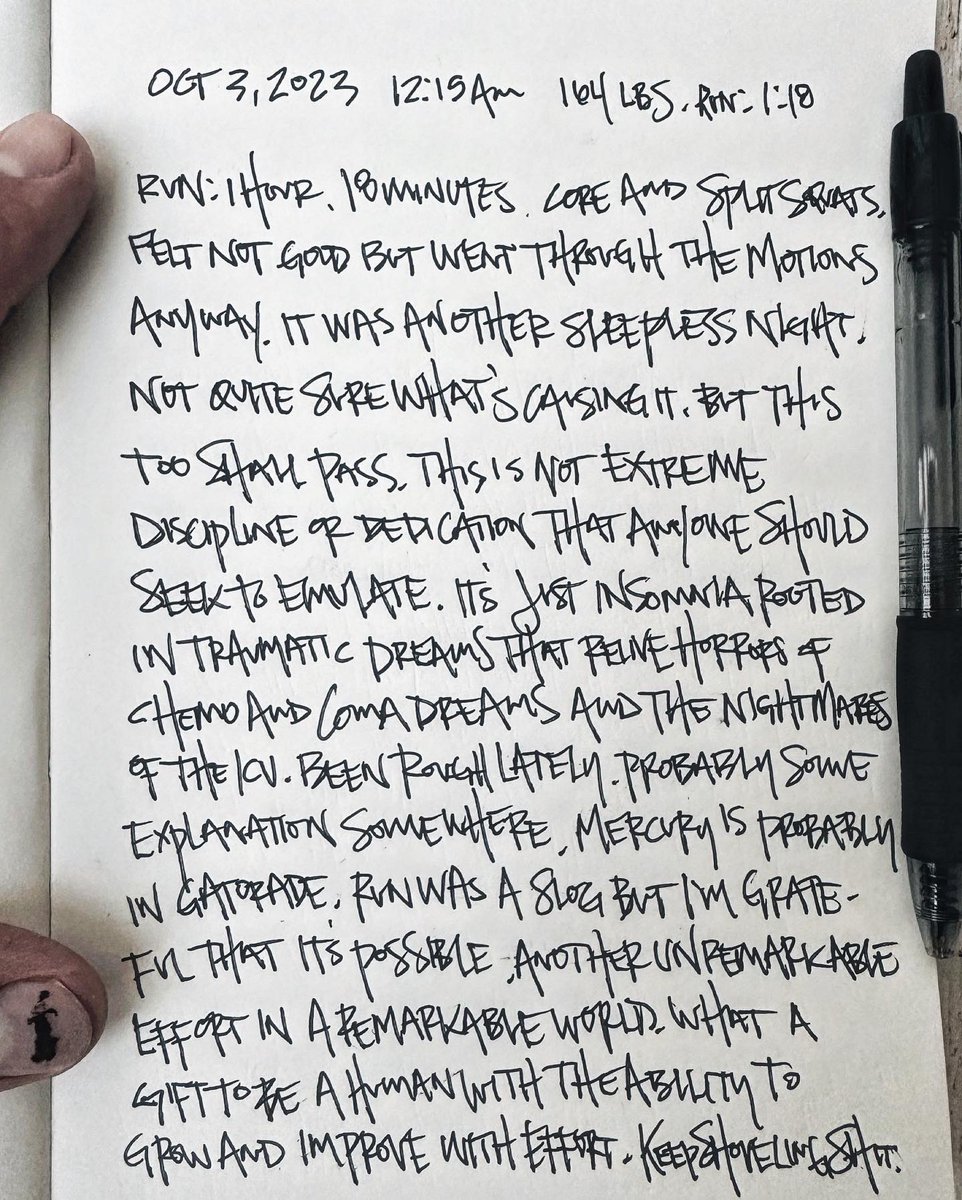 OCT 3, 2023 12:15AM 164 LBS. RUN: 1:18
RUN: 1 HOUR, 18 MINUTES. CORE AND SPLIT SQUATS.
FELT NOT GOOD BUT WENT THROUGH THE MOTIONS
ANYWAY. IT WAS ANOTHER SLEEPLESS NIGHT.
NOT QUITE SURE WHAT'S CAUSING IT. BUT THIS
TOO SHALL PASS. THIS IS NOT EXTREME
DISCIPLINE OR DEDICATION THAT ANYONE SHOULD
SEEK TO EMULATE. IT'S JUST INSOMNIA ROOTED
IN TRAUMATIC DREAMS THAT RELIVE HORRORS OF
CHEMO AND COMA DREAMS AND THE NIGHTMARES
OF THE ICU. BEEN ROUGH LATELY. PROBABLY SOME
EXPLANATION SOMEWHERE. MERCURY IS PROBABLY
IN GATORADE. RUN WAS A SLOG BUT I'M GRATE-
FUL THAT IT'S POSSIBLE. ANOTHER UNREMARKABLE
EFFORT IN A REMARKABLE WORLD. WHAT A
GIFT TO BE A HUMAN WITH THE ABILITY TO
GROW AND IMPROVE WITH EFFORT. KEEP SHOVELING SHIT.